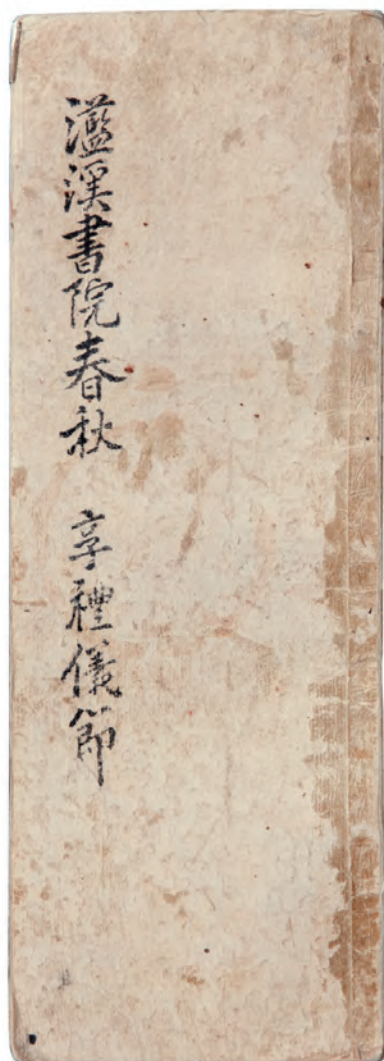 灆溪書院春秋 享禮儀節